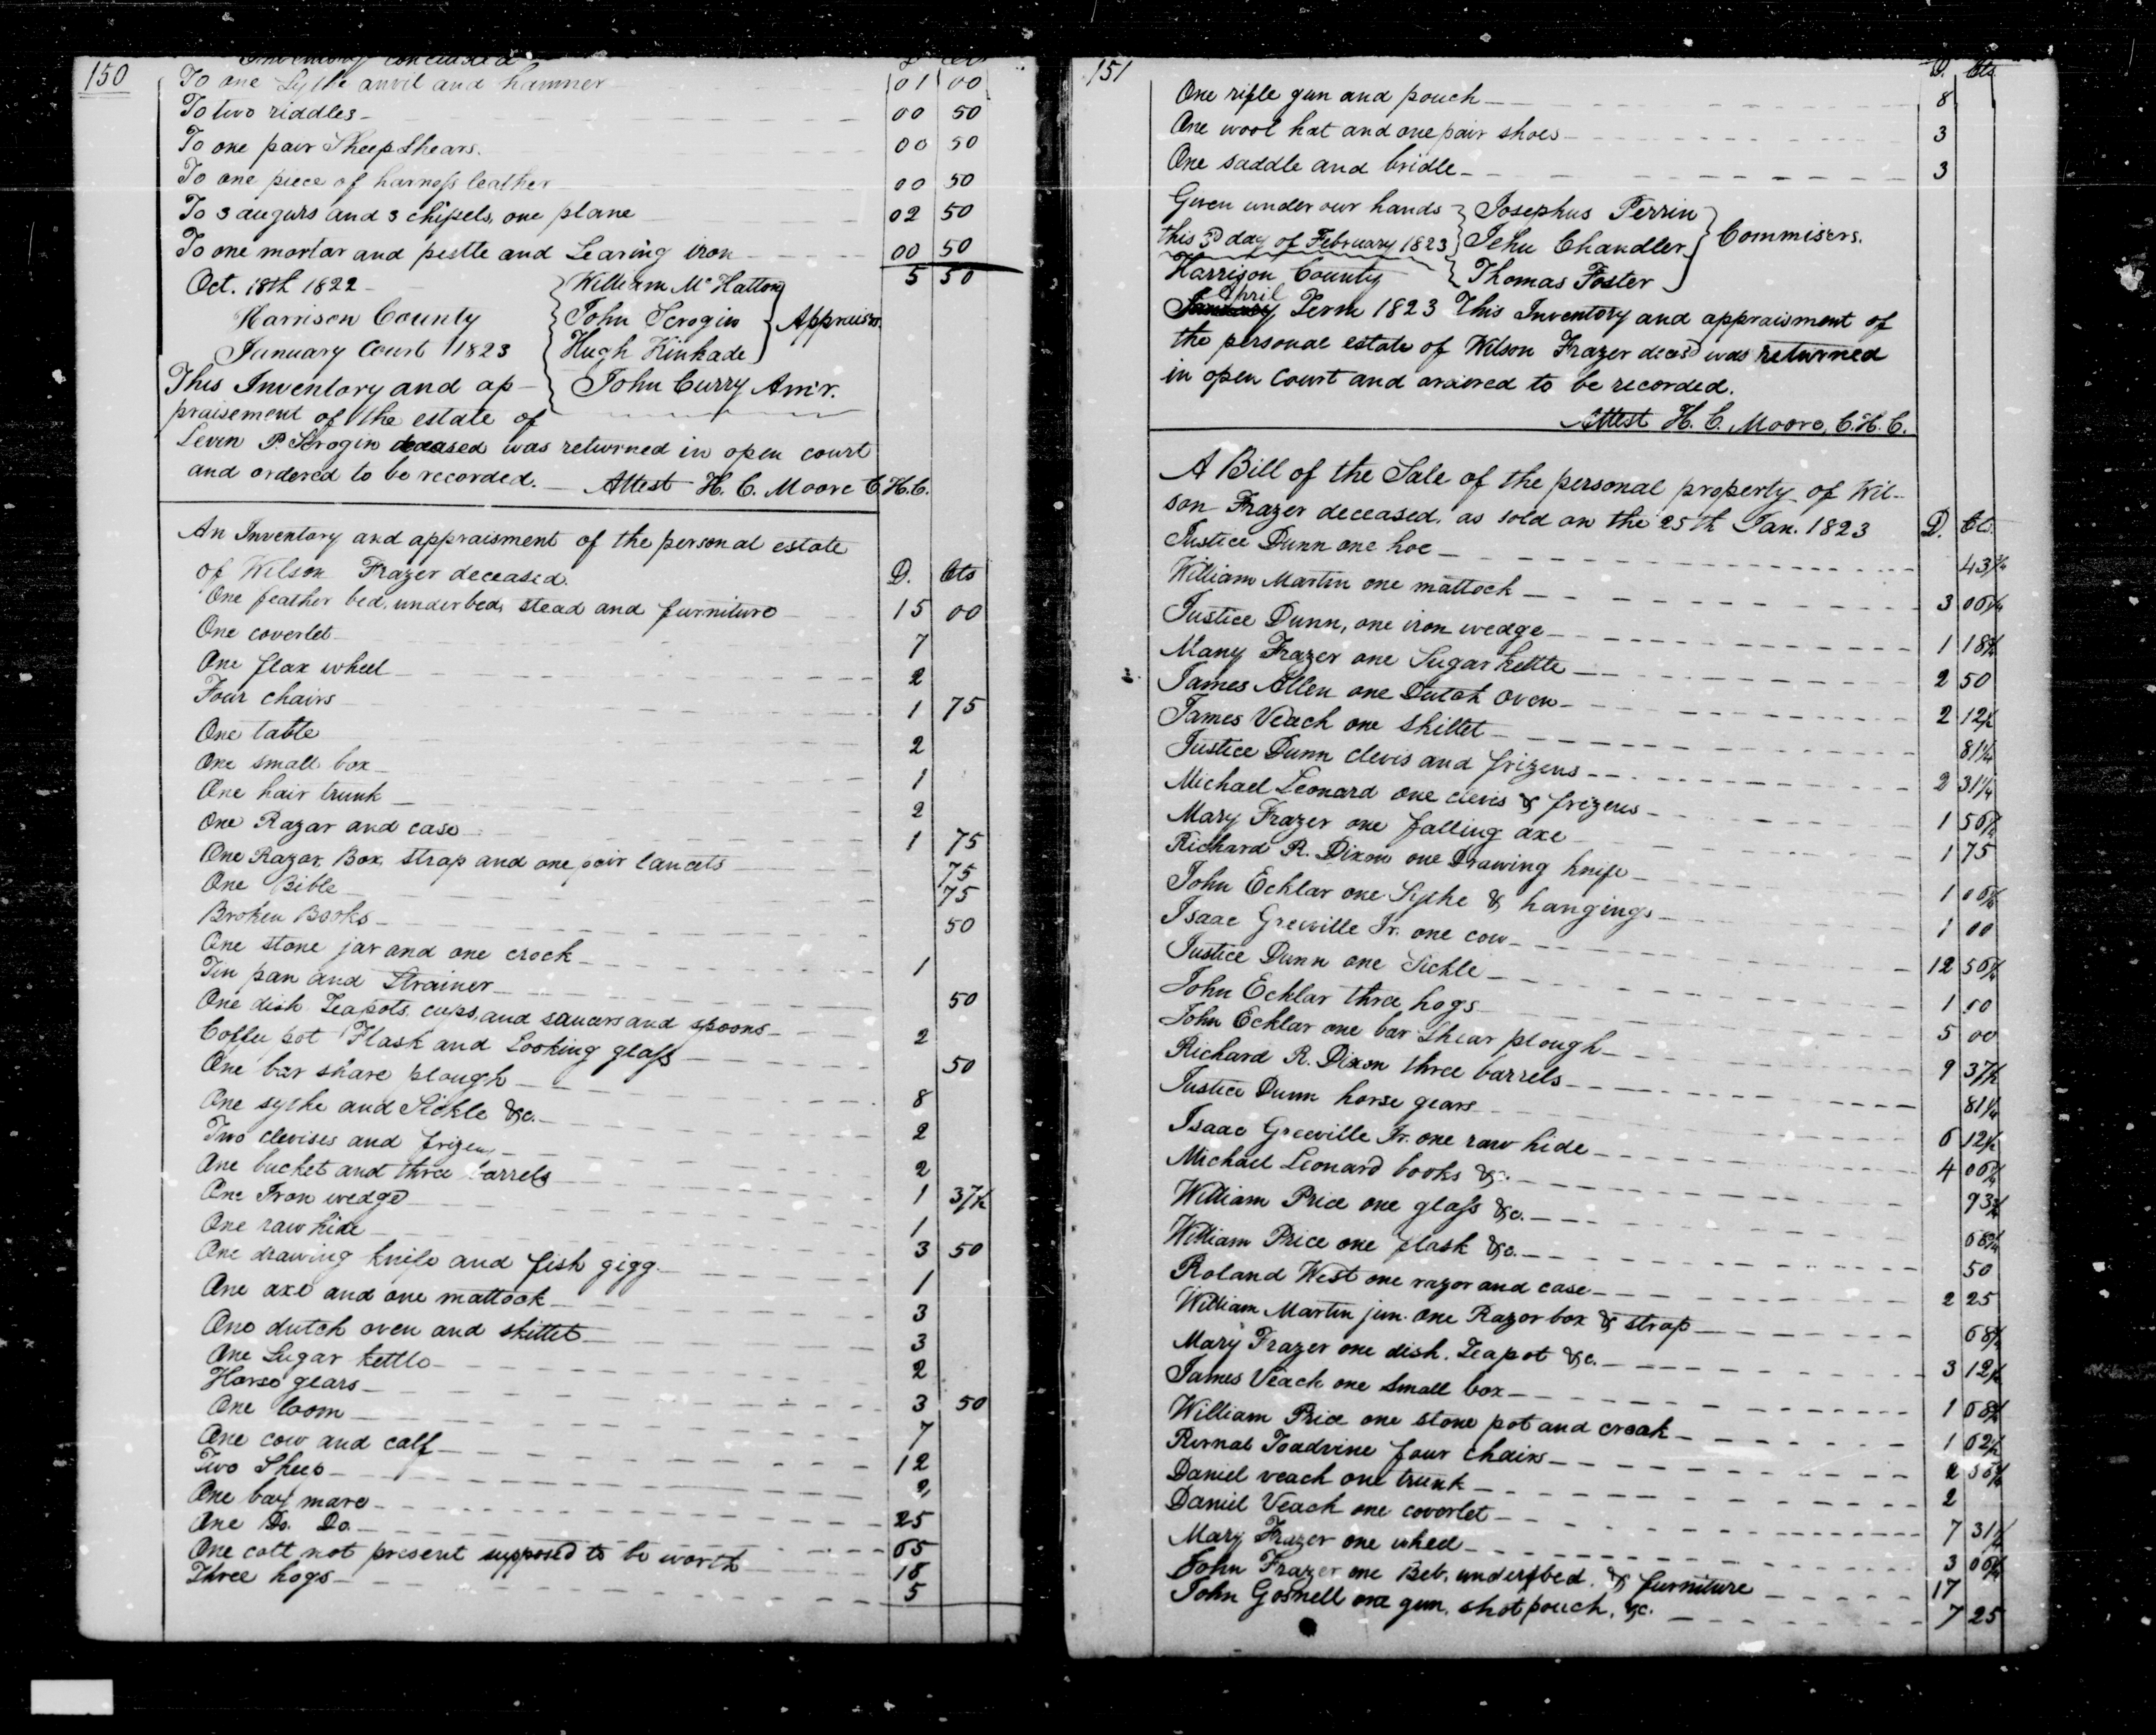 150
Inventory concluded D Cts
To one Sythe anvil and hammer 01 00
To two riddles 00 50
To one pair Sheep Shears. 00 50
To one piece of harness leather 00 50
To 3 augurs and 3 chissels, one plane 02 50
To one mortar and pestle and Searing iron 00 50
5 50
Oct. 18th 1822 William McHatton
Harrison County John Scrogin Appraisrs.
January Court 1823 Hugh Kinkade
This Inventory and ap- John Curry Am'r.
praisement of the estate of
Levin P. Scrogin deceased was returned in open court
and ordered to be recorded. Attest H. C. Moore C.H.C.
An Inventory and appraisment of the personal estate
of Wilson Frazer deceased. D. Cts
One feather bed, underbed, stead and furniture 15 00
One coverlet 7
One flax wheel 2
Four chairs 1 75
One table 2
One small box 1
One hair trunk 2
One Razar and case 1 75
One Razor, Box, strap and one pair lancets 75
One Bible 75
Broken Books 50
One stone jar and one crock 1
Tin pan and Strainer 50
One dish Teapots, cups, and saucers and spoons 2
Coffee pot Flask and Looking glass 50
One bar share plough 8
One sythe and Sickle &c. 2
Two clevises and frizens 2
One bucket and three barrels 1 37½
One Iron wedge 1
One raw hide 3 50
One drawing knife and fish gigg 1
One axe and one mattock 3
One dutch oven and skillet 3
One Sugar kettle 2
Horse gears 3 50
One loom 7
One cow and calf 12
Two Sheep 2
One bay mare 25
One Do. Do. 65
One colt not present supposed to be worth 18
Three hogs 5
151
D. Cts
One rifle gun and pouch 8
One wool hat and one pair shoes 3
One saddle and bridle 3
Given under our hands Josephus Perrin
this 3d day of February 1823 Jehu Chandler Commisers.
Harrison County Thomas Foster
April
January Term 1823 This Inventory and appraisment of
the personal estate of Wilson Frazer decesd was returned
in open Court and ordered to be recorded.
Attest H. C. Moore, C.H.C.
A Bill of the Sale of the personal property of Wil-
son Frazer deceased. as sold on the 25th Jan. 1823 D. Cts.
Justice Dunn one hoe 43¾
William Martin one mattock 3 06¼
Justice Dunn, one iron wedge 1 18¾
Mary Frazer one Sugar kettle 2 50
James Allen one Dutch Oven 2 12½
James Veach one Skillet 81¼
Justice Dunn clevis and frizens 2 31¼
Michael Leonard one clevis & frizens 1 56¼
Mary Frazer one falling axe 1 75
Richard R. Dixon one Drawing knife 1 06¼
John Ecklar one Sythe & hangings 1 00
Isaac Greeville Jr. one cow 12 56¼
Justice Dunn one Sickle 1 00
John Ecklar three hogs 5 00
John Ecklar one bar Shear plough 9 37½
Richard R. Dixon three barrels 81¼
Justice Dunn horse gears 6 12½
Isaac Greeville Jr. one raw hide 4 06¼
Michael Leonard books &c. 93¾
William Price one glass &c. 68¾
William Price one flask &c. 50
Roland West one razor and case 2 25
William Martin jun. one Razor box & strap 68¾
Mary Frazer one dish. Teapot &c. 3 12½
James Veach one small box 1 68¾
William Price one stone pot and croak 1 62½
Purnal Toadvine four chairs 2 56¼
Daniel veach one trunk 2
Daniel Veach one coverlet 7 31¼
Mary Frazer one wheel 3 06¼
John Frazer one Beb, underbed. & furniture 17
John Gosnell one gun, shot pouch, &c. 7 25